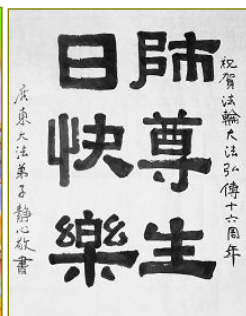 祝賀法輪大法弘傳十六周年
師尊生
日快樂
广東大法弟子靜心敬書